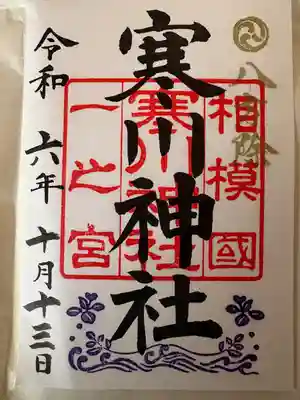 八方除
相模國
寒川神社
一之宮
寒川神社
令和 六年 十月十三日